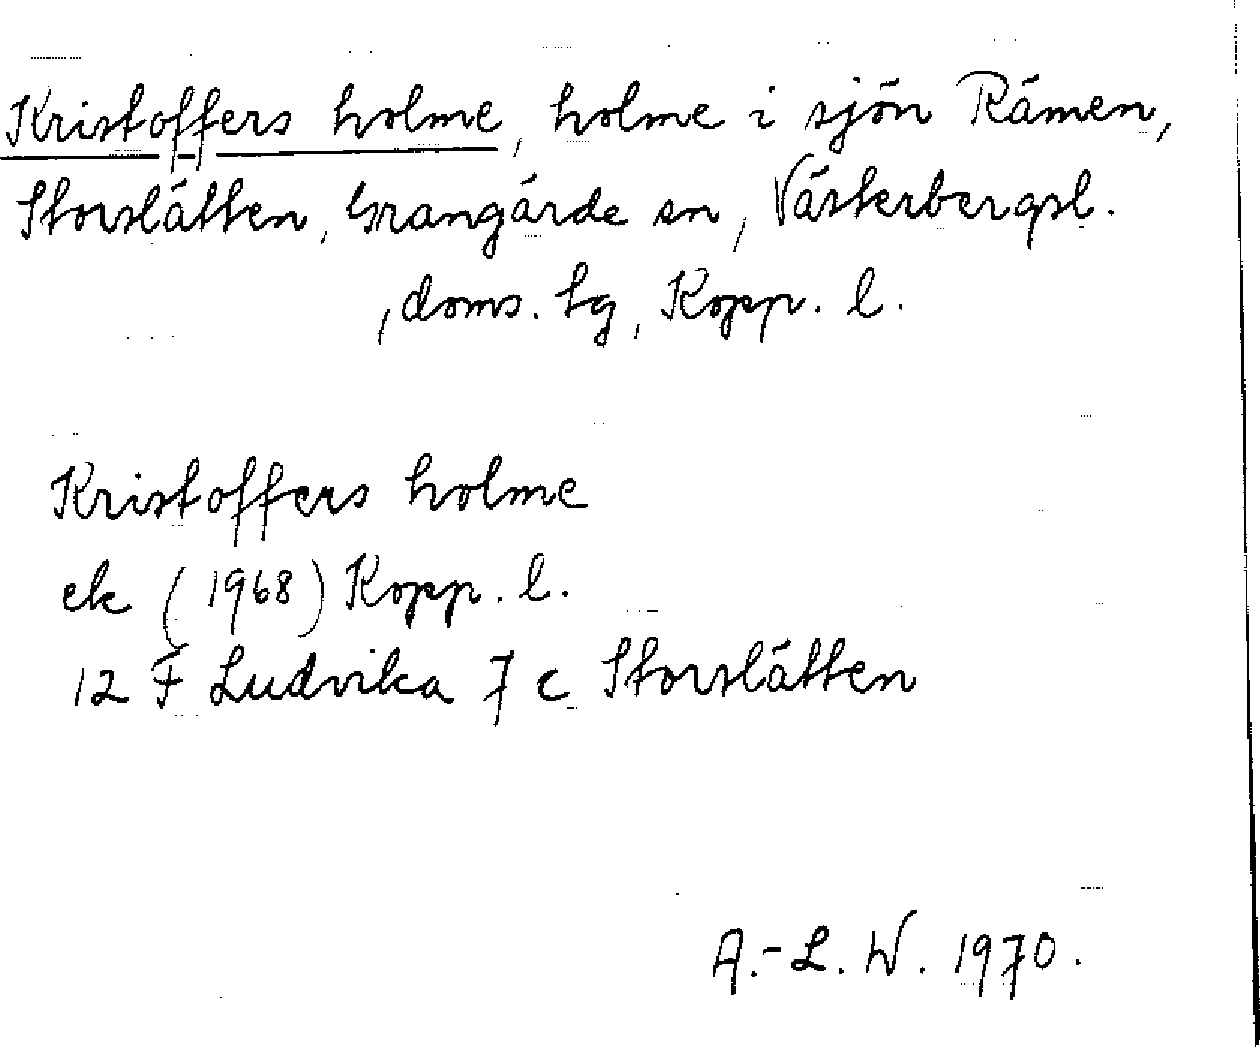 Kristoffers holme, holme i sjön Rämen,
Storslätten, Grangärde sn, Västerbergsl.
, doms. tg, Kopp. l.
Kristoffers holme
ek (1968) Kopp. l.
12 F Ludvika 7 c Storslätten
A.-L. W. 1970.